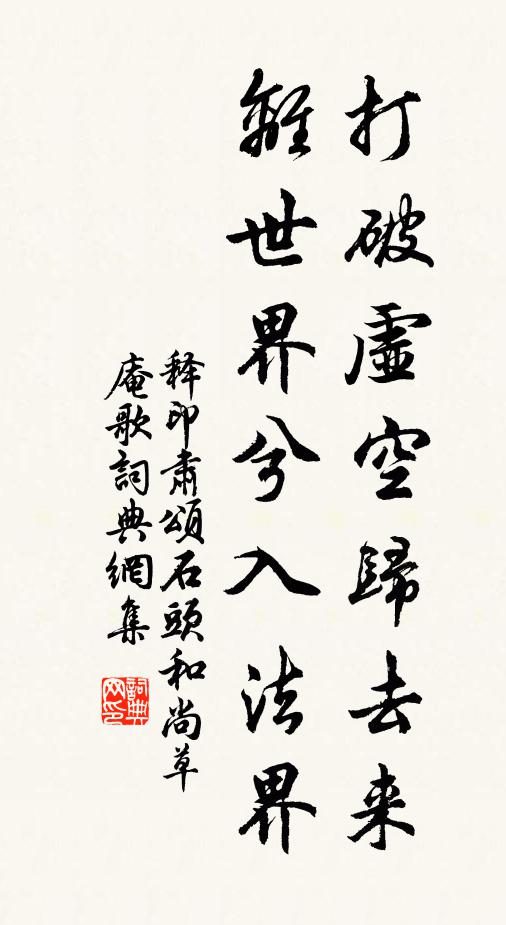 打破虛空歸去来
離世界兮入法界
释印肅頌石頭和尚草
庵歌詞典網集
詞典网印